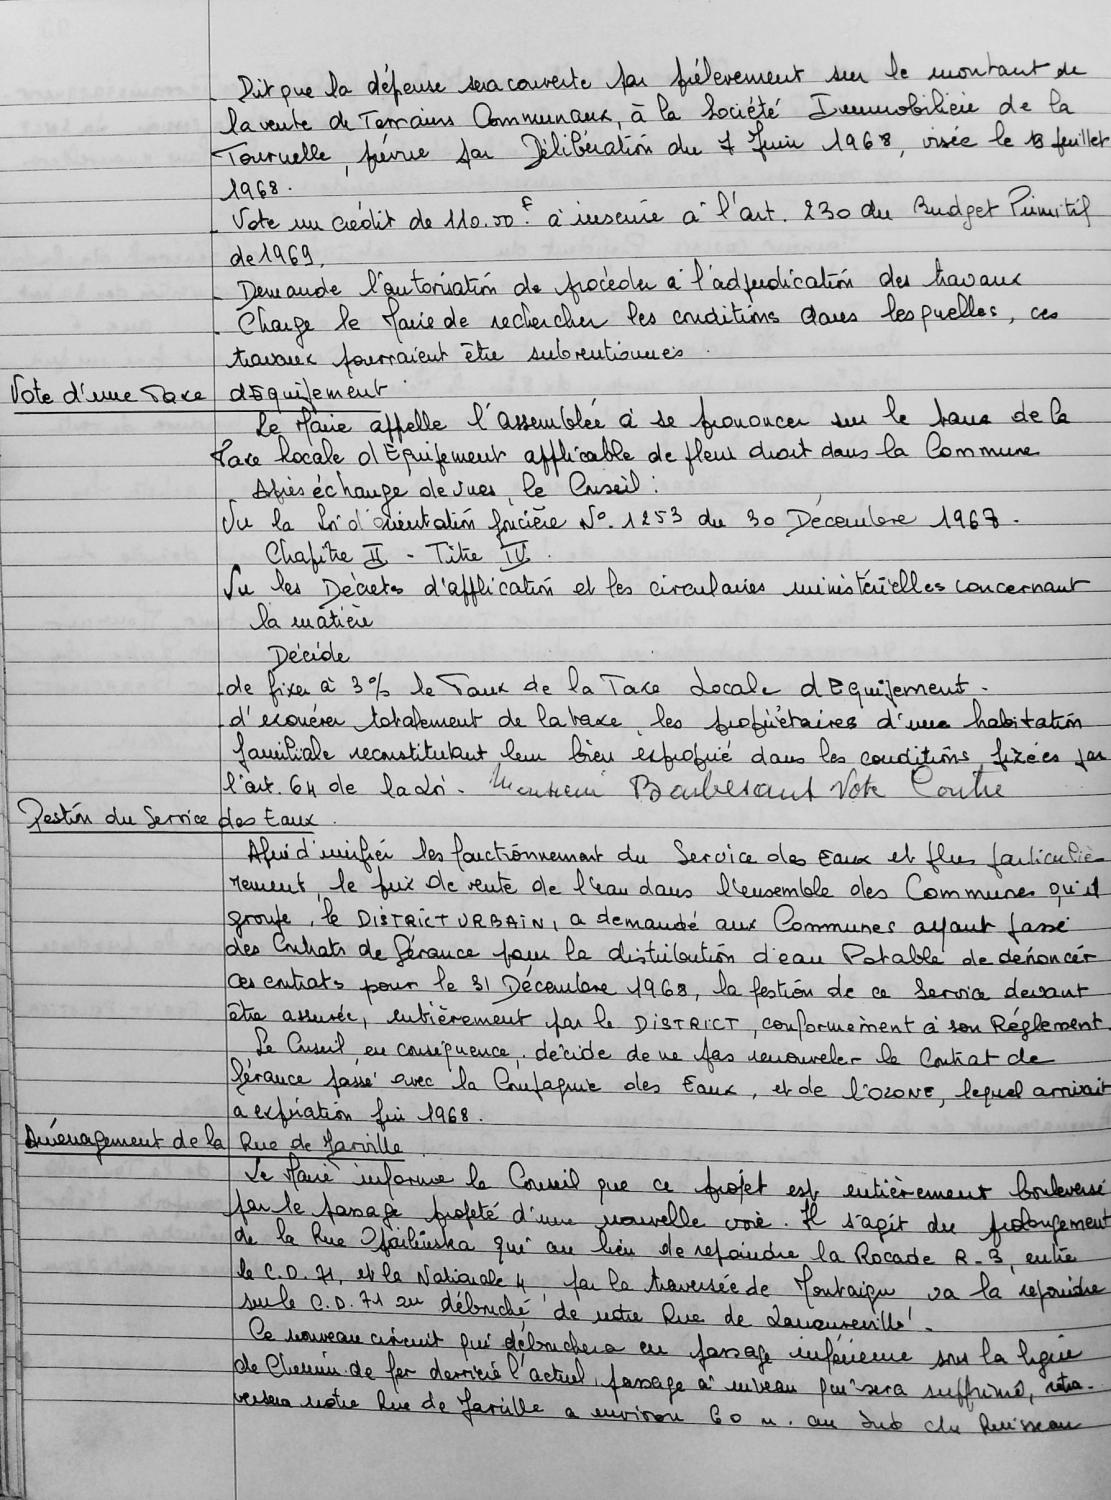 - Dit que la dépense sera couverte par prélèvement sur le montant de
la vente de Terrains Communaux, à la Société Immobilière de la
Tournelle, prévue par Délibération du 7 Juin 1968, visée le Juillet
1968.
- Vote un crédit de 110.50 F à inscrire à l'art. 230 du Budget Primitif
de 1969.
- Demande l'autorisation de procéder à l'adjudication des travaux
- Charge le Maire de rechercher les conditions dans lesquelles, ces
travaux pourraient être subventionnés.
Vote d'une Taxe d'Equipement
Le Maire appelle l'assemblée à se prononcer sur le taux de la
Taxe Locale d'Equipement applicable de plein droit dans la Commune
Après échange de vues, le Conseil :
Vu la Loi d'orientation foncière N°. 1253 du 30 Décembre 1967.
Chapitre II - Titre IV.
Vu les Décrets d'application et les circulaires ministérielles concernant
la matière
Décide
- de fixer à 3% le Taux de la Taxe Locale d'Equipement.
- d'exonérer totalement de la taxe, les propriétaires d'une habitation
familiale reconstituant leur bien exproprié dans les conditions, fixées par
l'art. 64 de la Loi. Monsieur Barbesant Vote Contre
Gestion du Service des Eaux.
Afin d'unifier les fonctionnement du Service des Eaux et plus particuliè-
rement, le prix de vente de l'eau dans l'ensemble des Communes qu'il
groupe, le DISTRICT URBAIN, a demandé aux Communes ayant passé
des Contrats de Gérance pour la distribution d'eau Potable de dénoncer
ces contrats pour le 31 Décembre 1968, la gestion de ce Service devant
être assurée, entièrement par le DISTRICT, conformement à son Réglement.
Le Conseil, en conséquence, décide de ne pas renouveler le Contrat de
Gérance passé avec la Compagnie des Eaux, et de l'OZONE, lequel arrivait
a expiration fin 1968.
Aménagement de la Rue de Jarville
Le Maire informe le Conseil que ce projet est entièrement bouleversé
par le passage projeté d'une nouvelle voie. Il s'agit du prolongement
de la Rue qui au lieu de rejoindre la Rocade R-3, entre
le C.D. 71, et la Nationale 4 par la traversée de Montaigu va la rejoindre
sur le C.D. 71 au débouché de notre Rue de Laneuveville.
Ce nouveau circuit qui débouchera en passage inférieure sous la ligne
de Chemin de fer derrière l'actuel passage à niveau qui sera supprimé, tra-
versera notre Rue de Jarville a environ 60 m. au Sud du Ruisseau